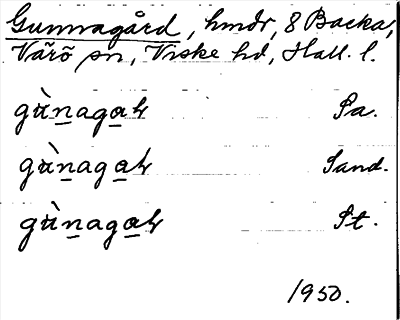 Gunnagård, hmdr, 8 Backa,
Värö sn, Viske hd, Hall. l.
gùnagaɫv Sa.
gùnagaɫv Sand.
gùnagaɫv St.
1950.